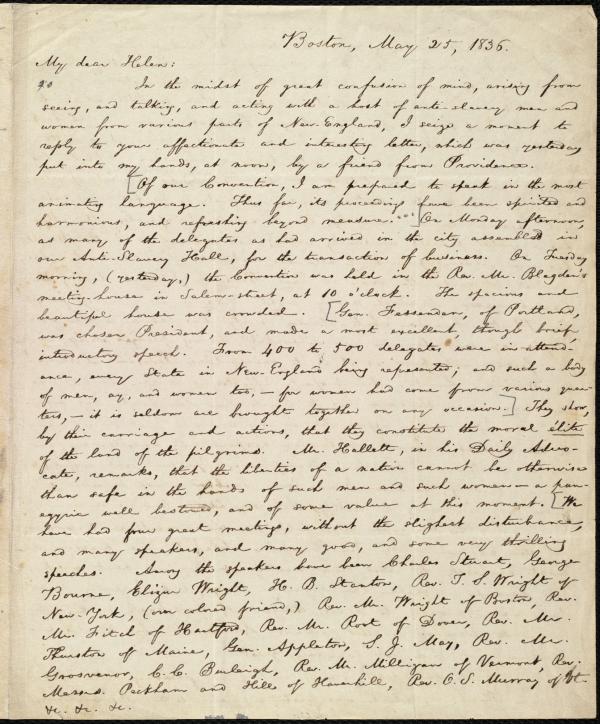 Boston, May 25, 1836.
My dear Helen:
In the midst of great confusion of mind, arising from
seeing, and talking, and acting with a host of anti-slavery men and
women from various parts of New-England, I seize a moment to
reply to your affectionate and interesting letter, which was yesterday
put into my hands, at noon, by a friend from Providence.
[Of our Convention, I am prepared to speak in the most
animating language. Thus far, its proceedings have been spirited and
harmonious, and refreshing beyond measure.] On Monday afternoon,
as many of the delegates as had arrived in the city assembled in
our Anti-Slavery Hall, for the transaction of business. On Tuesday
morning, (yesterday,) the Convention was held in the Rev. Mr. Blagden's
meeting-house in Salem-street, at 10 o'clock. The spacious and
beautiful house was crowded. [Gen. Fessenden, of Portland,
was chosen President, and made a most excellent, though brief
introductory speech. From 400 to 500 delegates were in attend-
ance, every State in New-England being represented; and such a body
of men, ay, and women too,—for women had come from various quar-
ters,—it is seldom are brought together on any occasion.] They show,
by their carriage and actions, that they constitute the moral élite
of the land of the pilgrims. Mr. Hallett, in his Daily Advo-
cate, remarks, that the liberties of a nation cannot be otherwise
than safe in the hands of such men and such women—a pan-
egyric well bestowed, and of some value at this moment. [We
have had four great meetings, without the slightest disturbance,
and many speakers, and many good, and some very thrilling
speeches. Among the speakers have been Charles Stuart, George
Bourne, Elizur Wright, H. B. Stanton, Rev. T. S. Wright of
New-York, (our colored friend,) Rev. Mr. Wright of Boston, Rev.
Mr. Fitch of Hartford, Rev. Mr. Root of Dover, Rev. Mr.
Thurston of Maine, Gen. Appleton, S. J. May, Rev. Mr.
Grosvenor, C. C. Burleigh, Rev. Mr. Milligan of Vermont, Rev.
Messrs. Peckham and Hills of Haverhill, Rev. O. S. Murray of Vt.
&c. &c. &c.